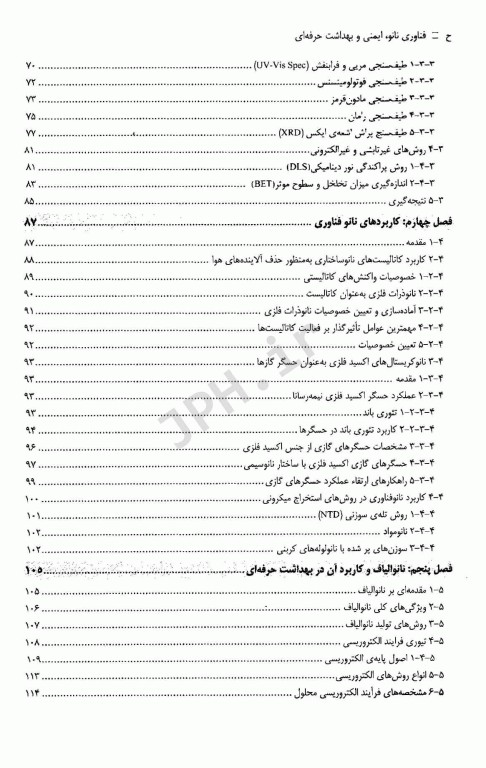 ح □ فناوری نانو، ایمنی و بهداشت حرفه‌ای
۳-۳-۱ طیف‌سنجی مریی و فرابنفش (UV-Vis Spec) ۷۰
۳-۳-۲ طیف‌سنجی فوتولومینسنس ۷۲
۳-۳-۳ طیف‌سنجی مادون‌قرمز ۷۳
۳-۳-۴ طیف‌سنجی رامان ۷۵
۳-۳-۵ طیف‌سنج پراش اشعه‌ی ایکس (XRD) ۷۷
۳-۴ روش‌های غیرتابشی و غیرالکترونی ۸۱
۳-۴-۱ روش پراکندگی نور دینامیکی(DLS) ۸۱
۳-۴-۲ اندازه‌گیری میزان تخلخل و سطوح موثر(BET) ۸۳
۳-۵ نتیجه‌گیری ۸۵
فصل چهارم: کاربردهای نانو فناوری ۸۷
۴-۱ مقدمه ۸۷
۴-۲ کاربرد کاتالیست‌های نانوساختاری به‌منظور حذف آلاینده‌های هوا ۸۸
۴-۲-۱ خصوصیات واکنش‌های کاتالیستی ۸۹
۴-۲-۲ نانوذرات فلزی به‌عنوان کاتالیست ۹۰
۴-۲-۳ آماده‌سازی و تعیین خصوصیات نانوذرات فلزی ۹۱
۴-۲-۴ مهمترین عوامل تأثیرگذار بر فعالیت کاتالیست‌ها ۹۲
۴-۲-۵ تعیین خصوصیات ۹۲
۴-۳ نانوکریستال‌های اکسید فلزی به‌عنوان حسگر گازها ۹۳
۴-۳-۱ مقدمه ۹۳
۴-۳-۲ عملکرد حسگر اکسید فلزی نیمه‌رسانا ۹۳
۴-۳-۲-۱ تئوری باند ۹۳
۴-۳-۲-۲ کاربرد تئوری باند در حسگرها ۹۴
۴-۳-۳ مشخصات حسگرهای گازی از جنس اکسید فلزی ۹۶
۴-۳-۴ حسگرهای گازی اکسید فلزی با ساختار نانوسیمی ۹۷
۴-۳-۵ راهکارهای ارتقاء عملکرد حسگرهای گازی ۹۹
۴-۴ کاربرد نانوفناوری در روش‌های استخراج میکرونی ۱۰۰
۴-۴-۱ روش تله‌ی سوزنی (NTD) ۱۰۱
۴-۴-۲ نانومواد ۱۰۲
۴-۴-۳ سوزن‌های پر شده با نانولوله‌های کربنی ۱۰۲
فصل پنجم: نانوالیاف و کاربرد آن در بهداشت حرفه‌ای ۱۰۵
۵-۱ مقدمه‌ای بر نانوالیاف ۱۰۵
۵-۲ ویژگی‌های کلی نانوالیاف ۱۰۶
۵-۳ روش‌های تولید نانوالیاف ۱۰۷
۵-۴ تیوری فرایند الکتروریسی ۱۰۸
۵-۴-۱ اصول پایه‌ی الکتروریسی ۱۰۹
۵-۵ انواع روش‌های الکتروریسی ۱۱۳
۵-۶ مشخصه‌های فرآیند الکتروریسی محلول ۱۱۴
JPH.ir